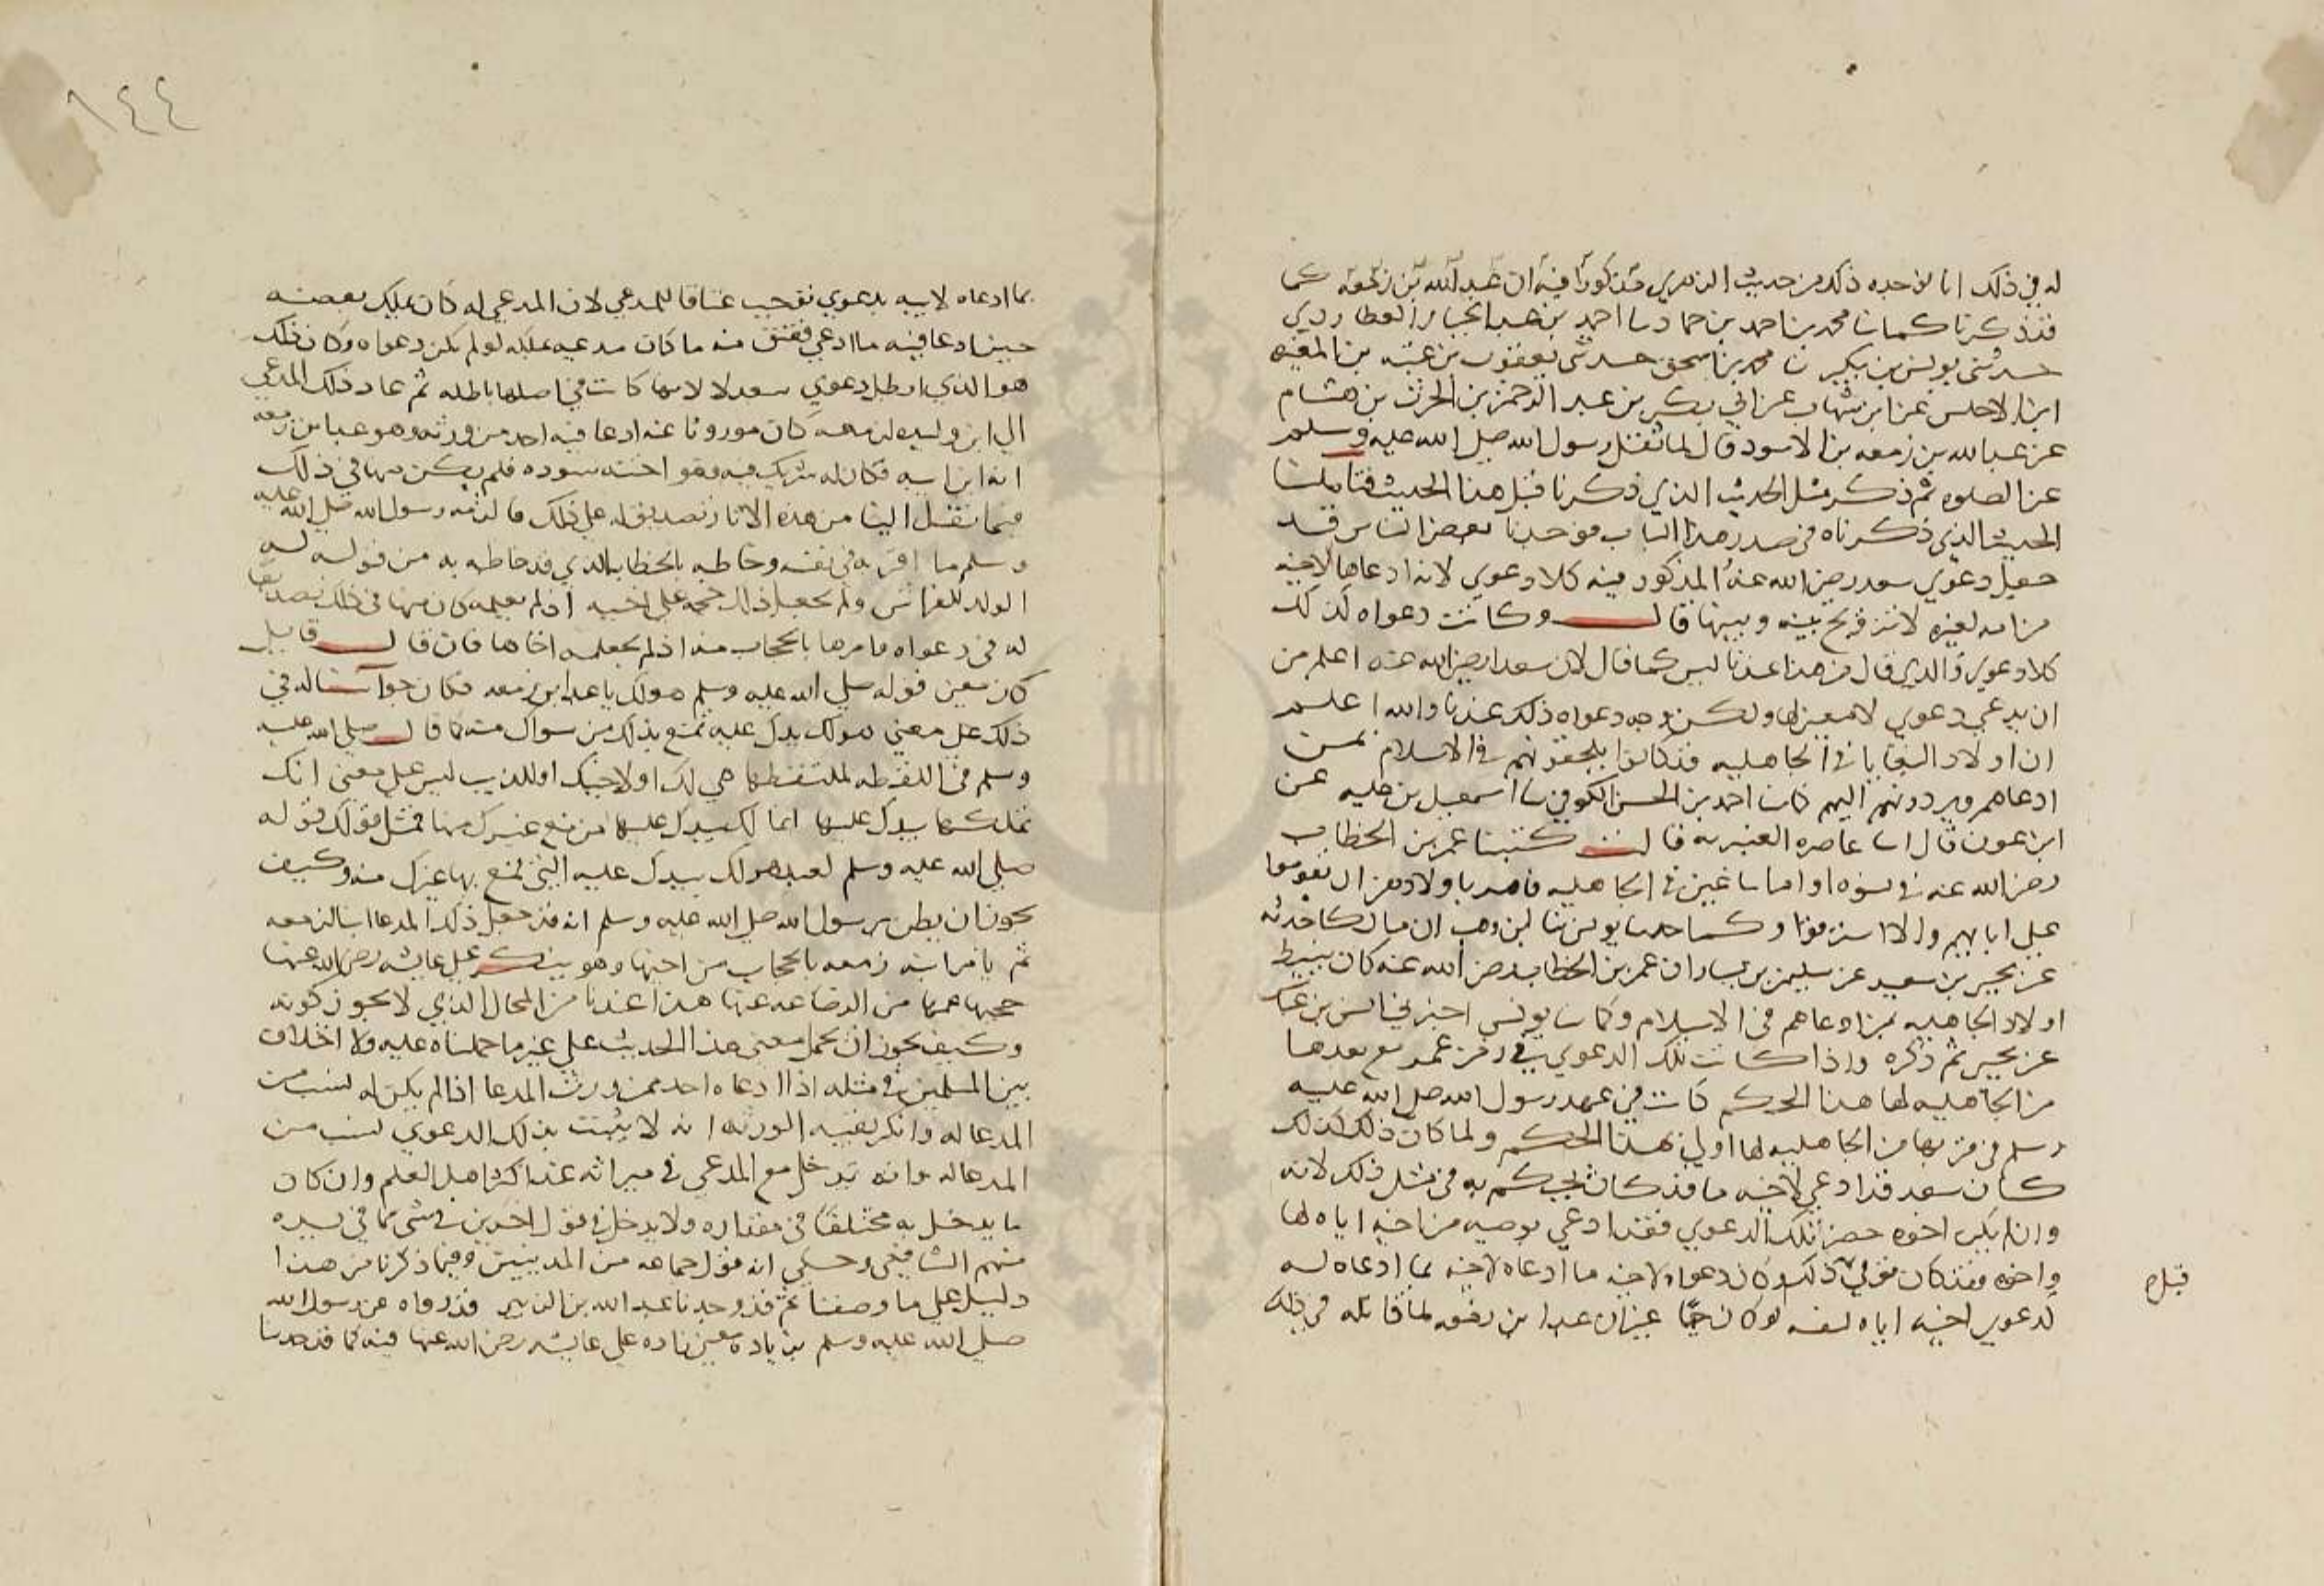 له في ذلك انا لم نجده ذكر من حديث الزهري مذكورا فيه ان عبد الله بن زمعة كما
قد ذكرنا كما ثنا محمد بن احمد بن حماد ثنا احمد بن عبد الجبار العطاردي
حدثني يونس بن بكير ثنا محمد بن اسحق حدثني يعقوب بن عتبه بن المغيره
ابن الاخنس عن ابن شهاب عن ابي بكر بن عبد الرحمن بن الحرث بن هشام
عن عبد الله بن زمعه بن الاسود قال لما ثقل رسول الله صلى الله عليه وسلم
عن الصلوه ثم ذكر مثل الحديث الذي ذكرنا قبل هذا الحديث فتاملنا
الحديث الذي ذكرناه في صدر هذا الباب فوجدنا بعض الناس قد
جعل دعوي سعد رضي الله عنه المذكور فيه كلا دعوي لانه ادعاها لاخيه
من امه لغيره لا تزويج بينه وبينها قال وكانت دعواه لذلك
كلا دعوي والذي قال من هذا عندنا ليس كما قال لان سعدا رضي الله عنه اعلم من
ان يدعي دعوي لا معنى لها ولكن وجه دعواه ذلك عندنا والله اعلم
ان اولاد البغايا في الجاهليه قد كانوا يلحقونهم في الاسلام بمن
ادعاهم ويردونهم اليهم كما ثنا احمد بن الحسن الكوفي ثنا اسمعيل بن عليه عن
ابن عون قال انبا غاضره العنبريه قال كتبنا عمر بن الخطاب
رضي الله عنه في نسوه او اما ساعين في الجاهليه فامر باولادهن ان يقوموا
على ابايهم ولا يسترقوا وكما حدثنا يونس ثنا ابن وهب ان مالكا حدثه
عن يحيى بن سعيد عن سليمن بن يسار ان عمر بن الخطاب رضي الله عنه كان يليط
اولاد الجاهليه بمن ادعاهم في الاسلام وكما ثنا يونس اخبرني انس بن عياض
عن يحيى ثم ذكره واذا كانت تلك الدعوي في زمن عمر مع بعدها
من الجاهليه لها هذا الحكم كانت في عهد رسول الله صلى الله عليه
وسلم في قربها من الجاهليه لها اولى بهذا الحكم ولما كان ذلك كذلك
كان سعد قد ادعي لاخيه ما قد كان يحكم به في مثل ذلك لانه
وان لم يكن اخوه حضر تلك الدعوي فقد ادعي بوصيه من اخيه اياه لها
واخوه فقد كان توفي ذلك وكان دعواه لاخيه ما ادعاه لاخيه بما ادعاه له
قبله
لدعوي اخيه اياه لنفسه لو كان حيا غير ان عبد ابن زمعه لما قابله في ذلك
١٤٤
بما ادعاه لابيه بدعوي توجب عتاقا للمدعي لان المدعي له كان يملك بعضه
حين ادعا فيه ما ادعي فعتق منه ما كان مدعيه يملكه لو لم يكن دعواه وكان ذلك
هو الذي ابطل دعوي سعد لا لانها كانت في اصلها باطله ثم عاد ذلك المدعي
الي ابن وليده زمعه كان موروثا عنه ادعا فيه احد من ورثه وهو عبد ابن زمعه
انه ابن ابيه فكان له شريك فيه وهو اخته سوده فلم يكن منها في ذلك
فيما نقل الينا من هذه الاثار تصديق له على ذلك فالزمه رسول الله صلى الله عليه
وسلم ما اقر به في نفسه وخاطبه بالخطاب الذي قد خاطبه به من قوله له
الولد للفراش ولم يجعل ذلك حجه على اخته اذ لم يعلمه كان منها في ذلك تصديقا
له في دعواه فامرها بالحجاب منه اذ لم يجعله اخاها فان قال قايل
كان معنى قوله صلى الله عليه وسلم هو لك يا عبد ابن زمعه فكان جوابنا له في
ذلك على معنى هو لك يدك عليه تمنع بذلك من سواك منه كما قال صلى الله عليه
وسلم في اللقطه لملتقطها هي لك او لاخيك او للذيب ليس على معنى انك
تملكها بيدك عليها انما لك يدك عليها من منع غيرك منها فمثل قولك قوله
صلى الله عليه وسلم لعبد هو لك يدك عليه التي تمنع بها غيرك منه وكيف
يجوز ان يظن برسول الله صلى الله عليه وسلم انه قد جعل ذلك المدعا ابنا لزمعه
ثم يامر ابنه زمعه بالحجاب من اخيها وهو ينكر على عايشه رضي الله عنها
حجبها عمها من الرضاعه عنها هذا عندنا من المحال الذي لا يجوز كونه
وكيف يجوز ان يحمل معنى هذا الحديث على غير ما حملناه عليه ولا اختلاف
بين المسلمين في مثله اذا ادعاه احد ممن ورث المدعا اذا لم يكن له نسب من
المدعا له وانكر بقيه الورثه انه لا يثبت بذلك الدعوي نسب من
المدعا له وانه يدخل مع المدعي في ميراثه عند اكثر اهل العلم وان كان
ما يدخل به مختلفا في مقداره ولا يدخل في قول اخرين في شي مما في يده
منهم الشافعي وحكي انه قول جماعه من المدينيين وفيما ذكرنا من هذا
دليل على ما وصفنا ثم قد وجدنا عبد الله بن الزبير قد رواه عن رسول الله
صلى الله عليه وسلم بزياده معنى زاده على عايشه رضي الله عنها فيه كما قد حدثنا